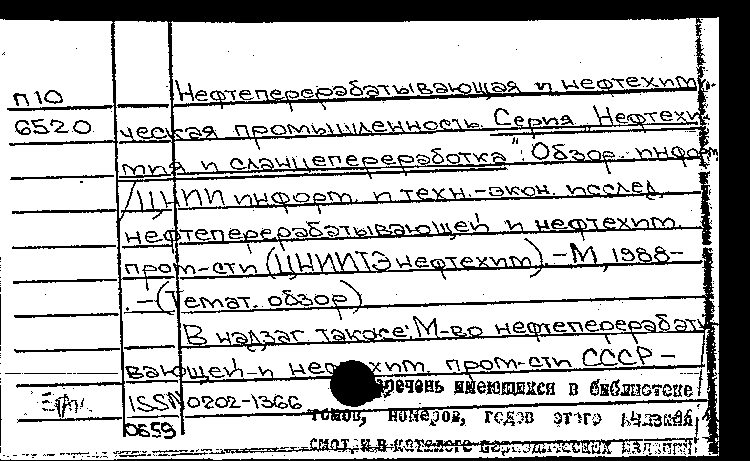 П10
6520
Нефтеперерабатывающая и нефтехими
ческая промышленность. Серия „Нефтехи
мия и сланцепереработка": Обзор. информ
/ЦНИИ информ. и техн.-экон. исслед.
нефтеперерабатывающей и нефтехим.
пром-сти (ЦНИИТЭнефтехим).-М, 1988-
.-(Темат. обзор)
В надзаг. также: М-во нефтеперерабаты
вающей и нефтехим. пром-сти СССР-
ISSN 0202-1366
0659
Перечень имеющихся в библиотеке
томов, номеров, годов этого издания
смотри в каталоге периодических изданий